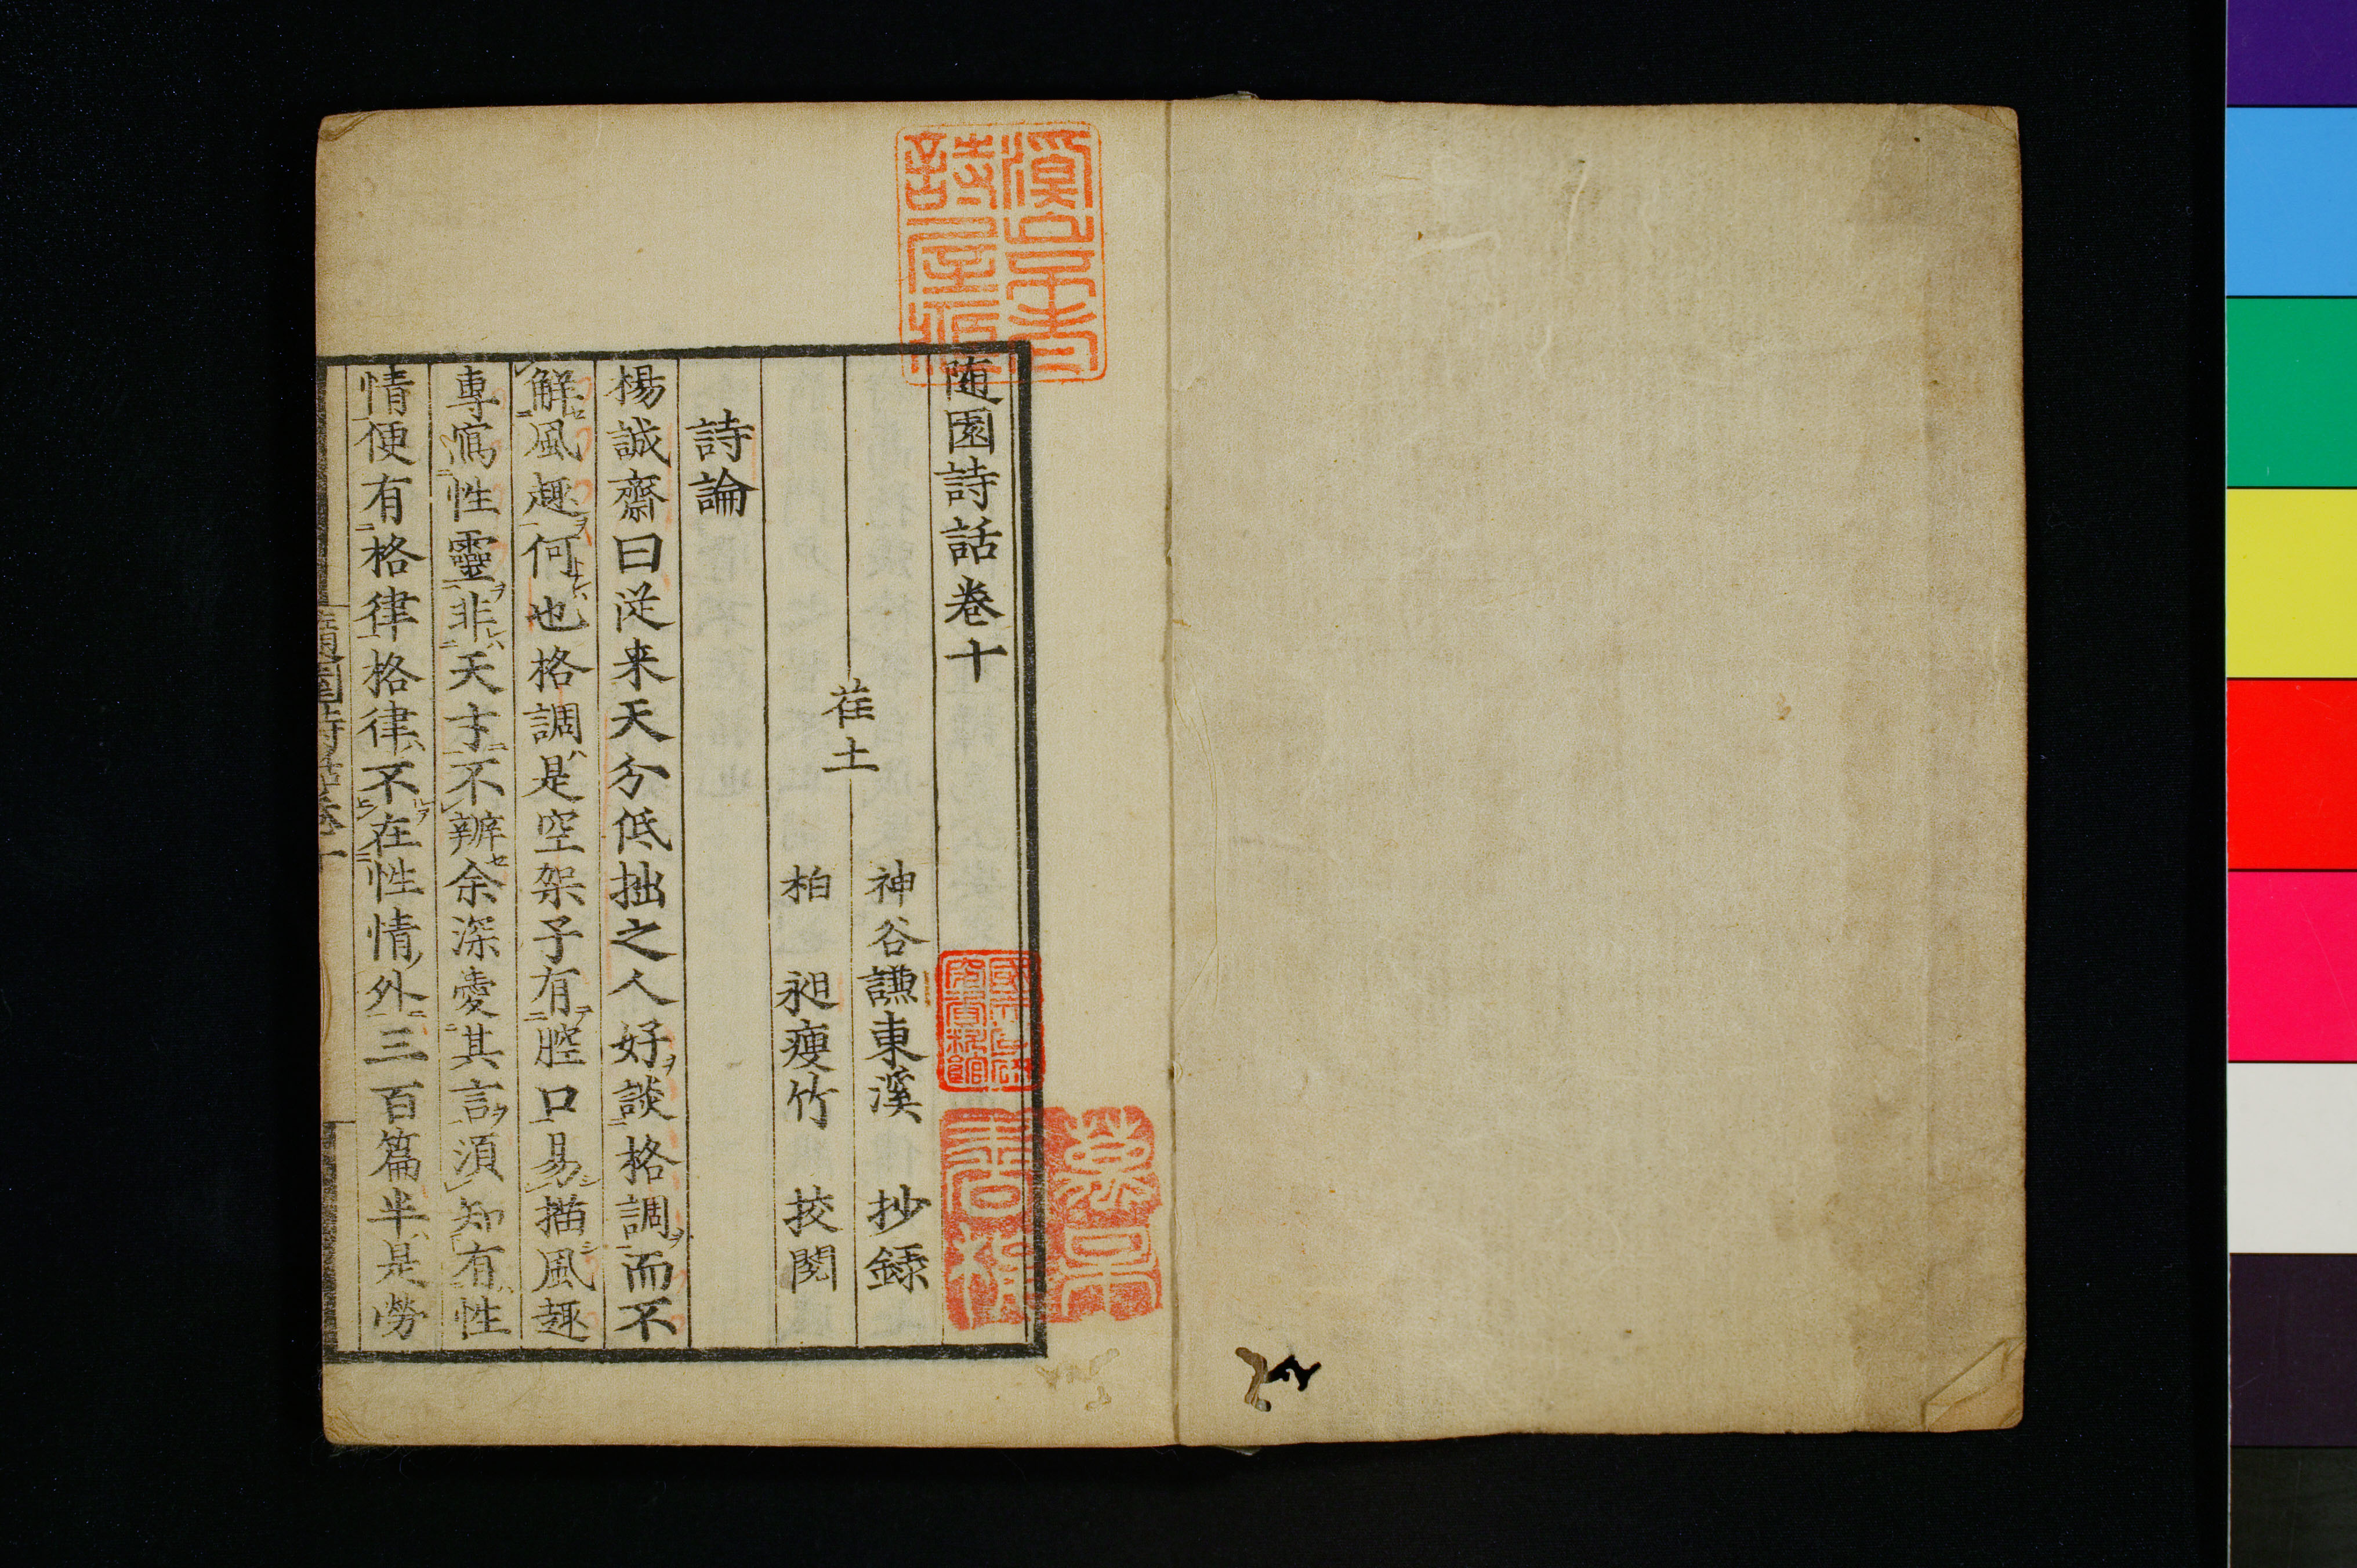 随園詩話卷十
神谷謙東溪 抄録
荏土
柏 昶瘦竹 挍閲
詩論
楊誠齋曰従来天分低拙之人好談格調而不
解風趣何也格調是空架子有腔口易描風趣
專寫性靈非天才不辨余深愛其言須知有性
情便有格律格律不在性情外三百篇半是勞
隨園詩話卷十